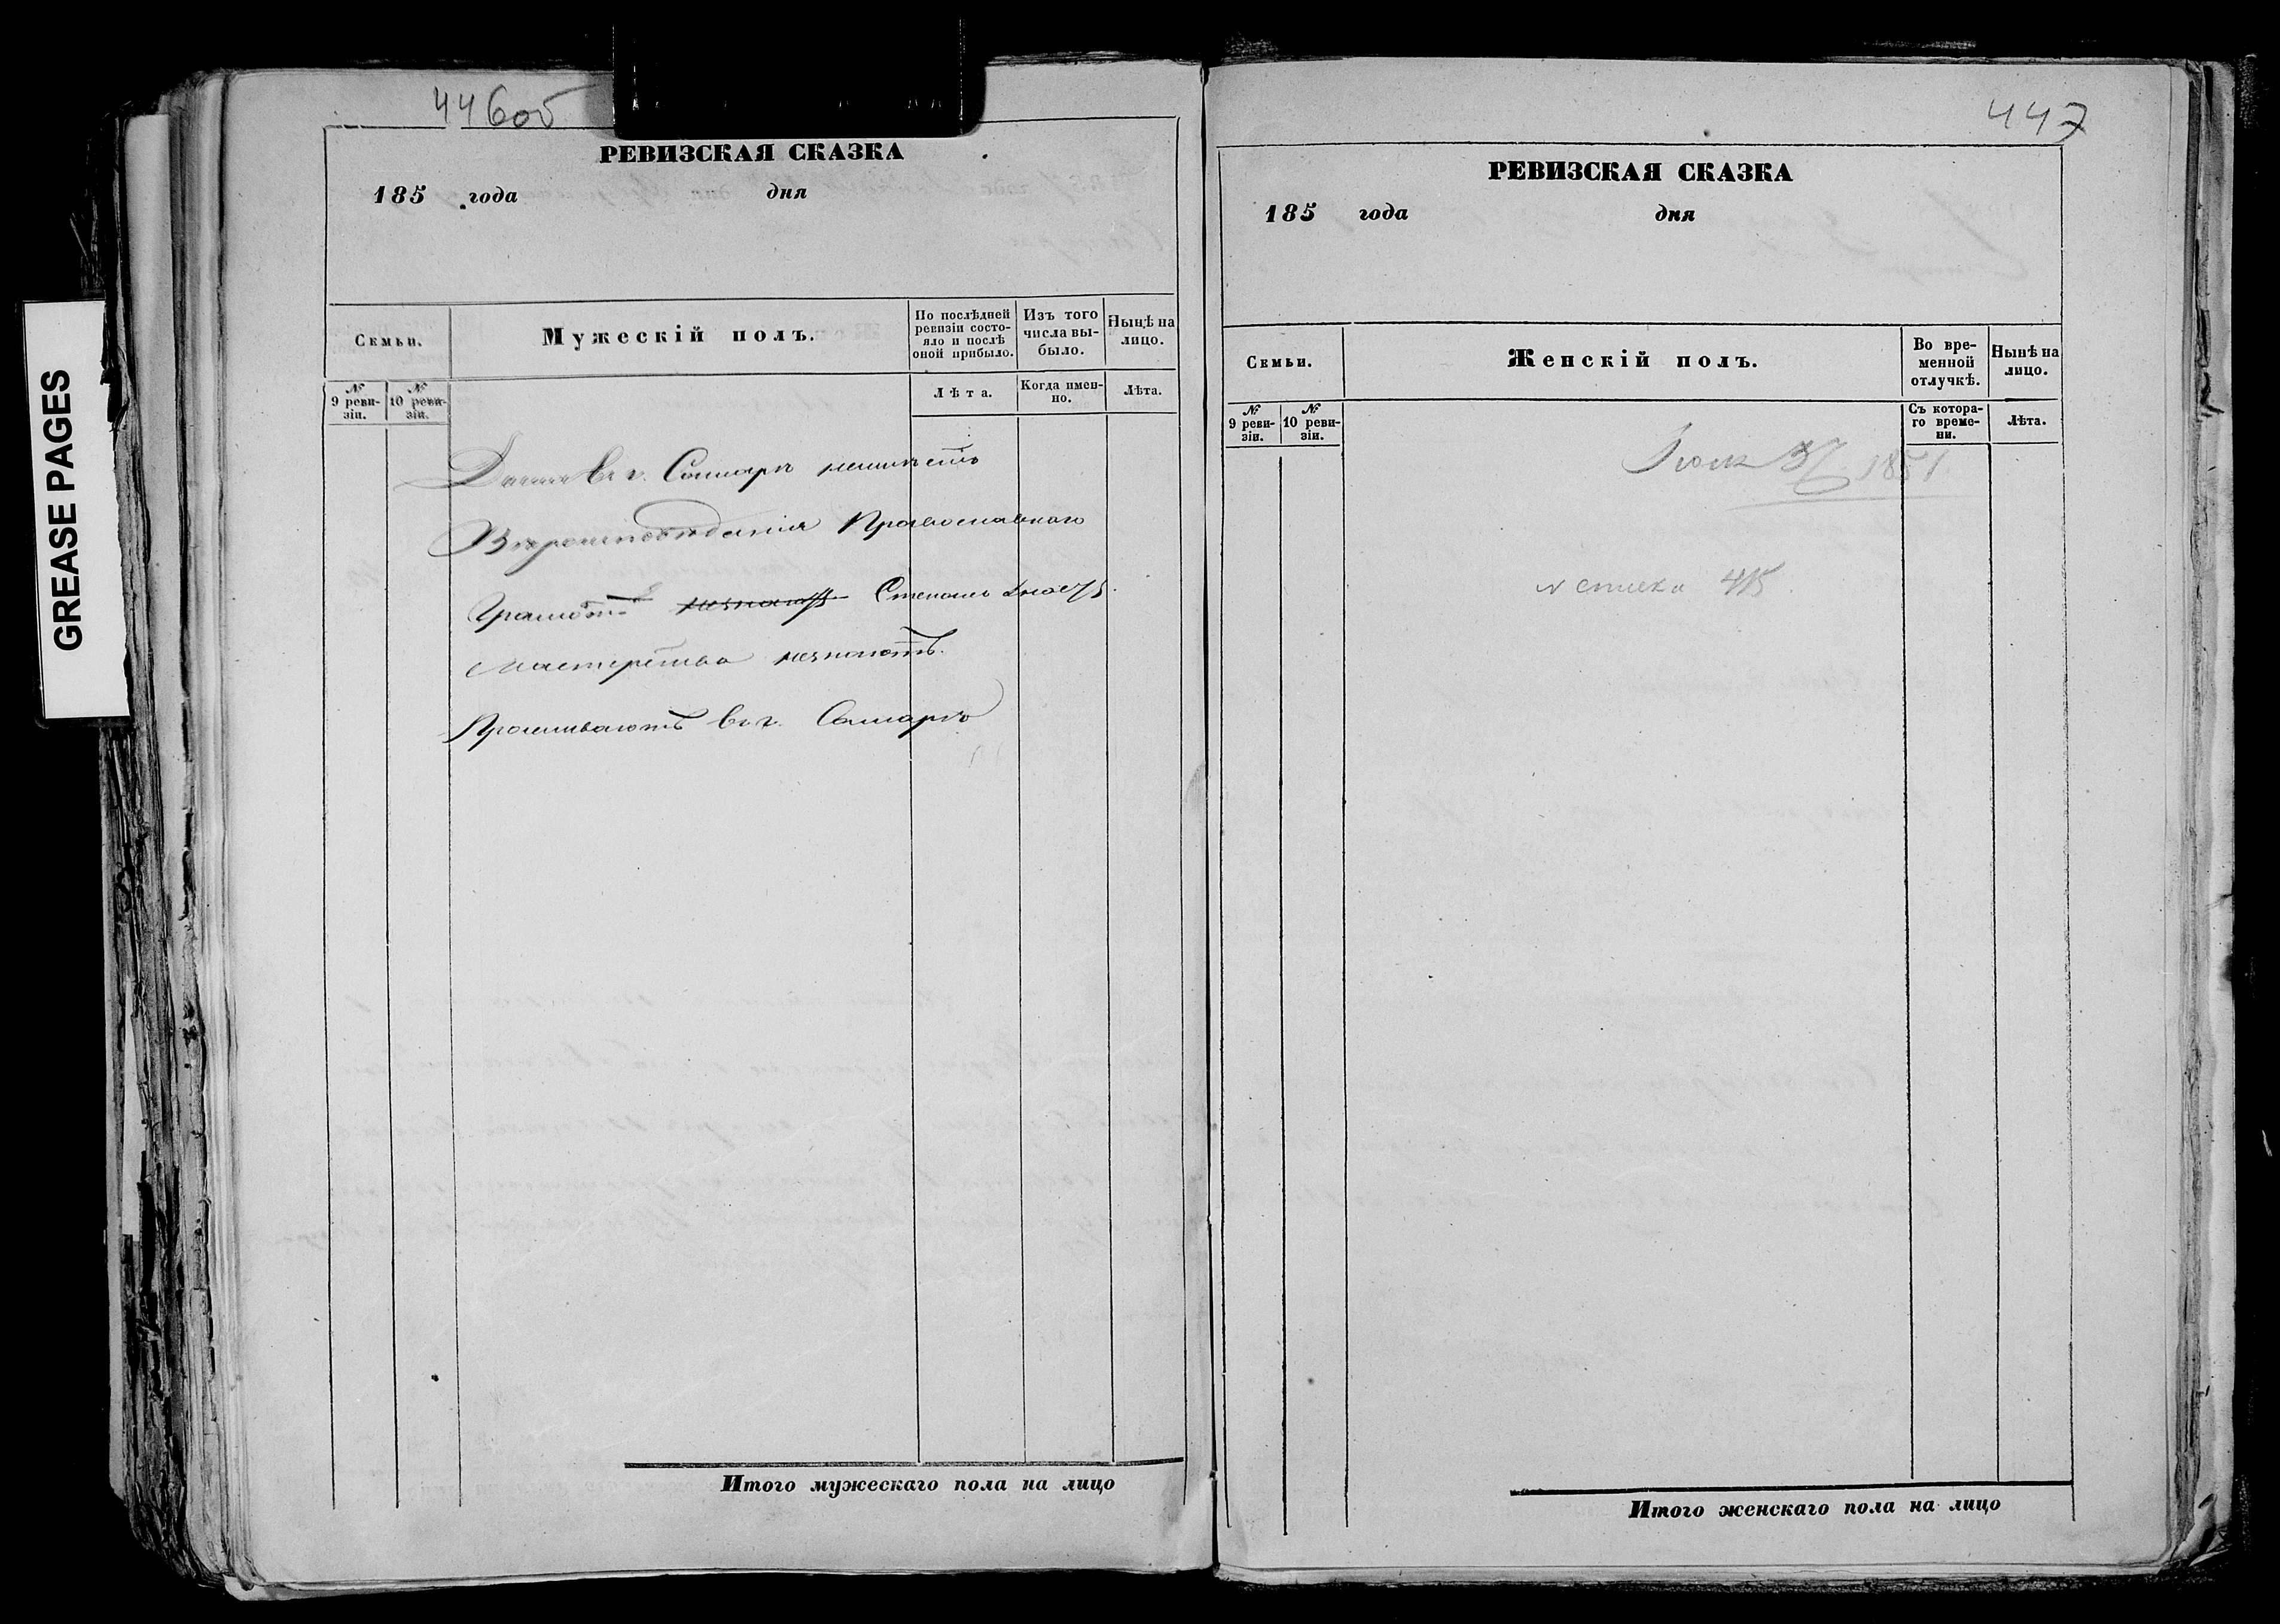 GREASE PAGES
446об
РЕВИЗСКАЯ СКАЗКА
185 года дня
Семьи.
Мужескій полъ.
По послѣдней ревизіи состояло и послѣ оной прибыло.
Изъ того числа выбыло.
Нынѣ на лицо.
№ 9 ревизіи.
№ 10 ревизіи.
Лѣта.
Когда именно.
Лѣта.
въ г. Самарѣ неимѣетъ
Вѣроисповѣданія Православнаго
Грамотѣ незнаютъ Степанъ знаетъ.
Мастерства незнаютъ.
Проживаютъ въ г. Самарѣ
Итого мужескаго пола на лицо
447
РЕВИЗСКАЯ СКАЗКА
185 года дня
Семьи.
Женскій полъ.
Во временной отлучкѣ.
Нынѣ на лицо.
№ 9 ревизіи.
№ 10 ревизіи.
Съ котораго времени.
Лѣта.
Итого женскаго пола на лицо